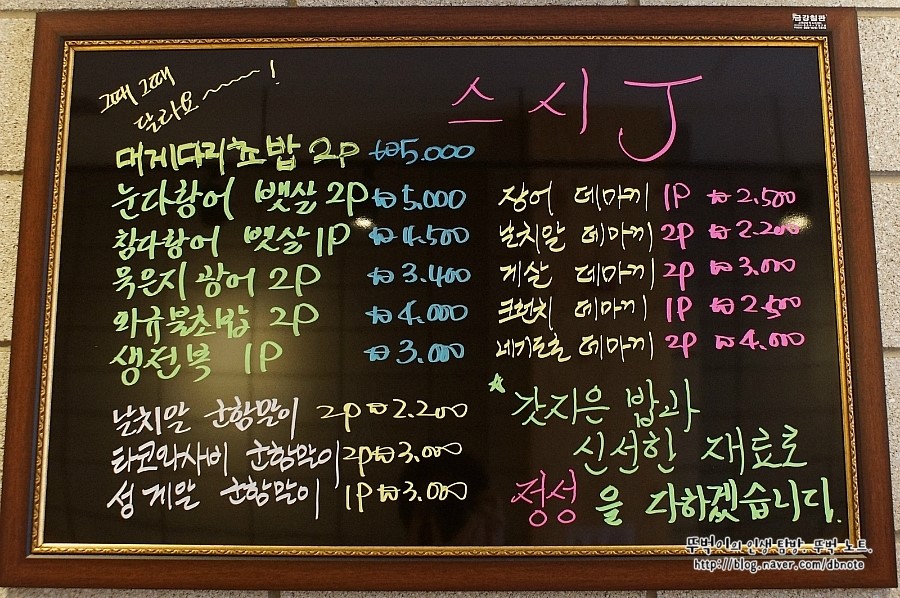 금강칠판
그때 그때
달라요~~~!
스시 J
대게다리초밥 2P ₩5,000
눈다랑어 뱃살 2P ₩5,000
참다랑어 뱃살 1P ₩4,500
묵은지 광어 2P ₩3,400
와규불초밥 2P ₩4,000
생전복 1P ₩3,000
날치알 군함말이 2P ₩2,200
타코와사비 군함말이 2P ₩3,000
성게알 군함말이 1P ₩3,000
장어 데마끼 1P ₩2,500
날치알 데마끼 2P ₩2,200
게살 데마끼 2P ₩3,000
크런치 데마끼 1P ₩2,500
네기도로 데마끼 2P ₩4,000
★갓지은 밥과
신선한 재료로
정성을 다하겠습니다.
뚜벅이의 인생 탐방. 뚜벅 노트.
http://blog.naver.com/dbnote